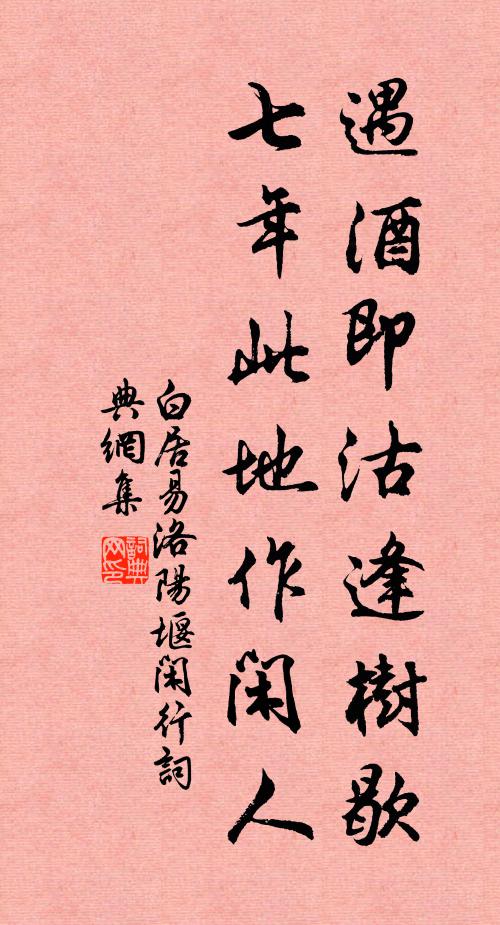 遇酒即沽逢樹歇
七年此地作閑人
白居易洛陽堰閑行詞
典網集
詞典网印